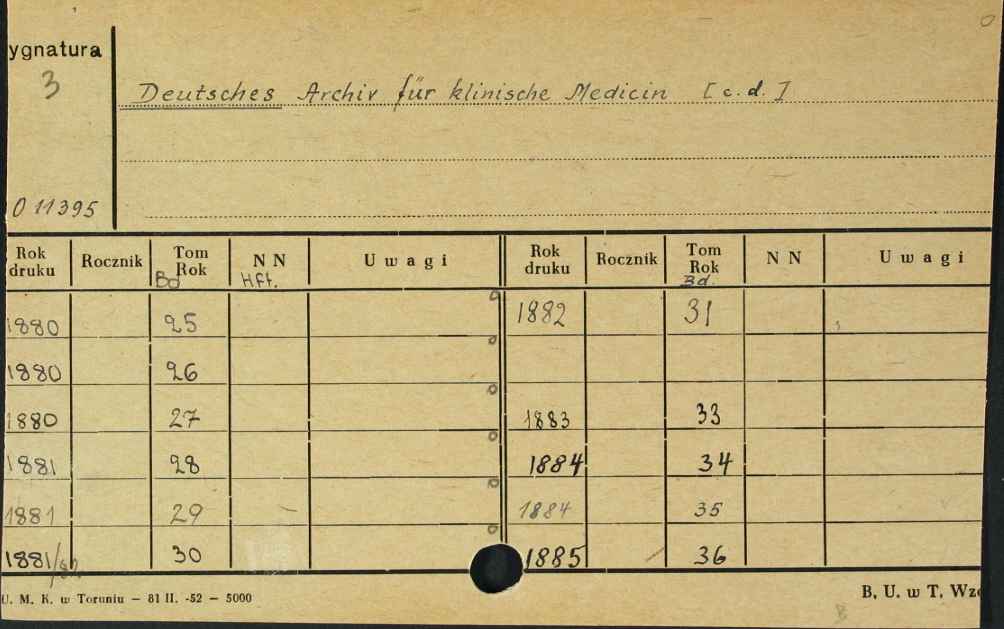 ygnatura
3
Deutsches Archiv für klinische Medicin [c.d.]
0 11395
Rok druku Rocznik Tom Rok Bd NN Hft. Uwagi Rok druku Rocznik Tom Rok Bd. NN Uwagi
1880 25 1882 31
1880 26
1880 27 1883 33
1881 28 1884 34
1881 29 1884 35
1881/82 30 1885 36
U. M. K. w Toruniu – 81 II. -52 – 5000 B. U. w T. Wzó
B